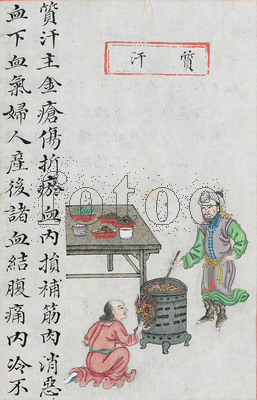 質汗主金瘡傷損瘀血內損補筋肉消惡
血下血氣婦人產後諸血結腹痛內冷不
質汗
Fotoe